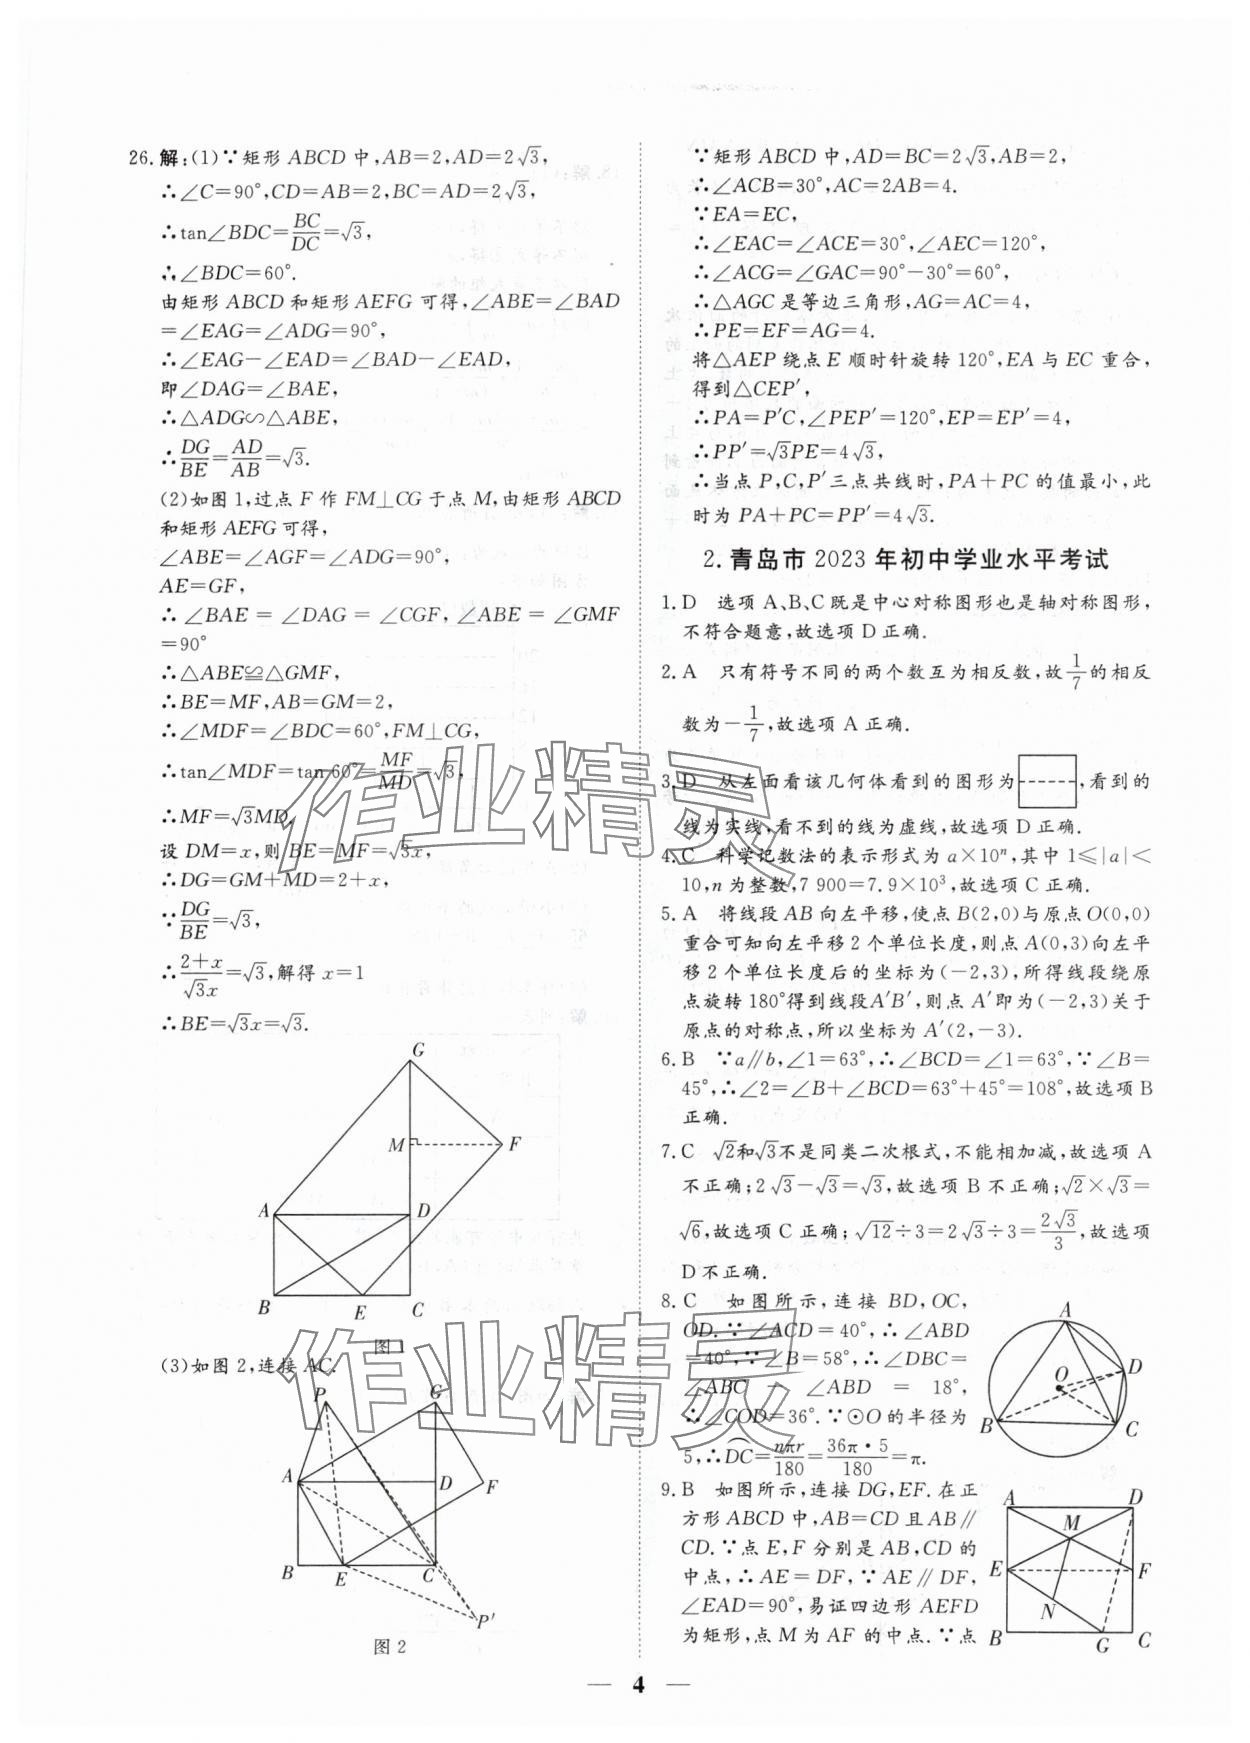 26.解:(1)∵矩形ABCD中,AB=2,AD=2√3,
∴∠C=90°,CD=AB=2,BC=AD=2√3,
∴tan∠BDC=BC/DC=√3,
∴∠BDC=60°.
由矩形ABCD和矩形AEFG可得,∠ABE=∠BAD
=∠EAG=∠ADG=90°,
∴∠EAG-∠EAD=∠BAD-∠EAD,
即∠DAG=∠BAE,
∴△ADG∽△ABE,
∴DG/BE=AD/AB=√3.
(2)如图1,过点F作FM⊥CG于点M,由矩形ABCD
和矩形AEFG可得,
∠ABE=∠AGF=∠ADG=90°,
AE=GF,
∴∠BAE=∠DAG=∠CGF,∠ABE=∠GMF
=90°
∴△ABE≌△GMF,
∴BE=MF,AB=GM=2,
∴∠MDF=∠BDC=60°,FM⊥CG,
∴tan∠MDF=tan 60°=MF/MD=√3,
∴MF=√3MD,
设DM=x,则BE=MF=√3x,
∴DG=GM+MD=2+x,
∵DG/BE=√3,
∴(2+x)/(√3x)=√3,解得x=1
∴BE=√3x=√3.
G
M
F
A
D
B
E
C
图1
(3)如图2,连接AC.
P
G
A
D
F
B
E
C
P′
图2
∵矩形ABCD中,AD=BC=2√3,AB=2,
∴∠ACB=30°,AC=2AB=4.
∵EA=EC,
∴∠EAC=∠ACE=30°,∠AEC=120°,
∴∠ACG=∠GAC=90°-30°=60°,
∴△AGC是等边三角形,AG=AC=4,
∴PE=EF=AG=4.
将△AEP绕点E顺时针旋转120°,EA与EC重合,
得到△CEP′,
∴PA=P′C,∠PEP′=120°,EP=EP′=4,
∴PP′=√3PE=4√3,
∴当点P,C,P′三点共线时,PA+PC的值最小,此
时为PA+PC=PP′=4√3.
2.青岛市2023年初中学业水平考试
1.D 选项A、B、C既是中心对称图形也是轴对称图形,
不符合题意,故选项D正确.
2.A 只有符号不同的两个数互为相反数,故1/7的相反
数为-1/7,故选项A正确.
3.D 从左面看该几何体看到的图形为,看到的
线为实线,看不到的线为虚线,故选项D正确.
4.C 科学记数法的表示形式为a×10ⁿ,其中1≤|a|<
10,n为整数,7 900=7.9×10³,故选项C正确.
5.A 将线段AB向左平移,使点B(2,0)与原点O(0,0)
重合可知向左平移2个单位长度,则点A(0,3)向左平
移2个单位长度后的坐标为(-2,3),所得线段绕原
点旋转180°得到线段A′B′,则点A′即为(-2,3)关于
原点的对称点,所以坐标为A′(2,-3).
6.B ∵a∥b,∠1=63°,∴∠BCD=∠1=63°,∵∠B=
45°,∴∠2=∠B+∠BCD=63°+45°=108°,故选项B
正确.
7.C √2和√3不是同类二次根式,不能相加减,故选项A
不正确;2√3-√3=√3,故选项B不正确;√2×√3=
√6,故选项C正确;√12÷3=2√3÷3=2√3/3,故选项
D不正确.
8.C 如图所示,连接BD,OC,
OD.∵∠ACD=40°,∴∠ABD
=40°,∵∠B=58°,∴∠DBC=
∠ABC-∠ABD=18°,
∴∠COD=36°.∵⊙O的半径为
5,∴⌒DC=nπr/180=36π·5/180=π.
A
D
O
B
C
9.B 如图所示,连接DG,EF.在正
方形ABCD中,AB=CD且AB∥
CD.∵点E,F分别是AB,CD的
中点,∴AE=DF,∵AE∥DF,
∠EAD=90°,易证四边形AEFD
为矩形,点M为AF的中点.∵点
A
D
M
E
F
N
B
G
C
4
作业精灵
作业精灵